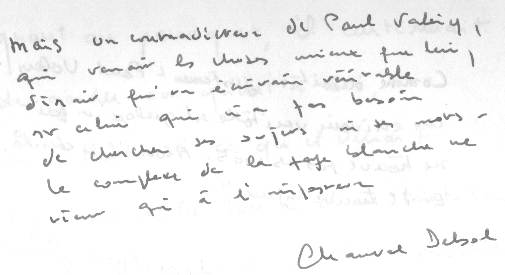 Mais un contradicteur de Paul Valéry,
qui venait les choses mieux que lui,
disait qu'un écrivain véritable
est celui qui n'a pas besoin
de chercher ses sujets ni ses mots -
le complexe de la page blanche ne
vient qu'à l'imposteur
Chauvel Delsol